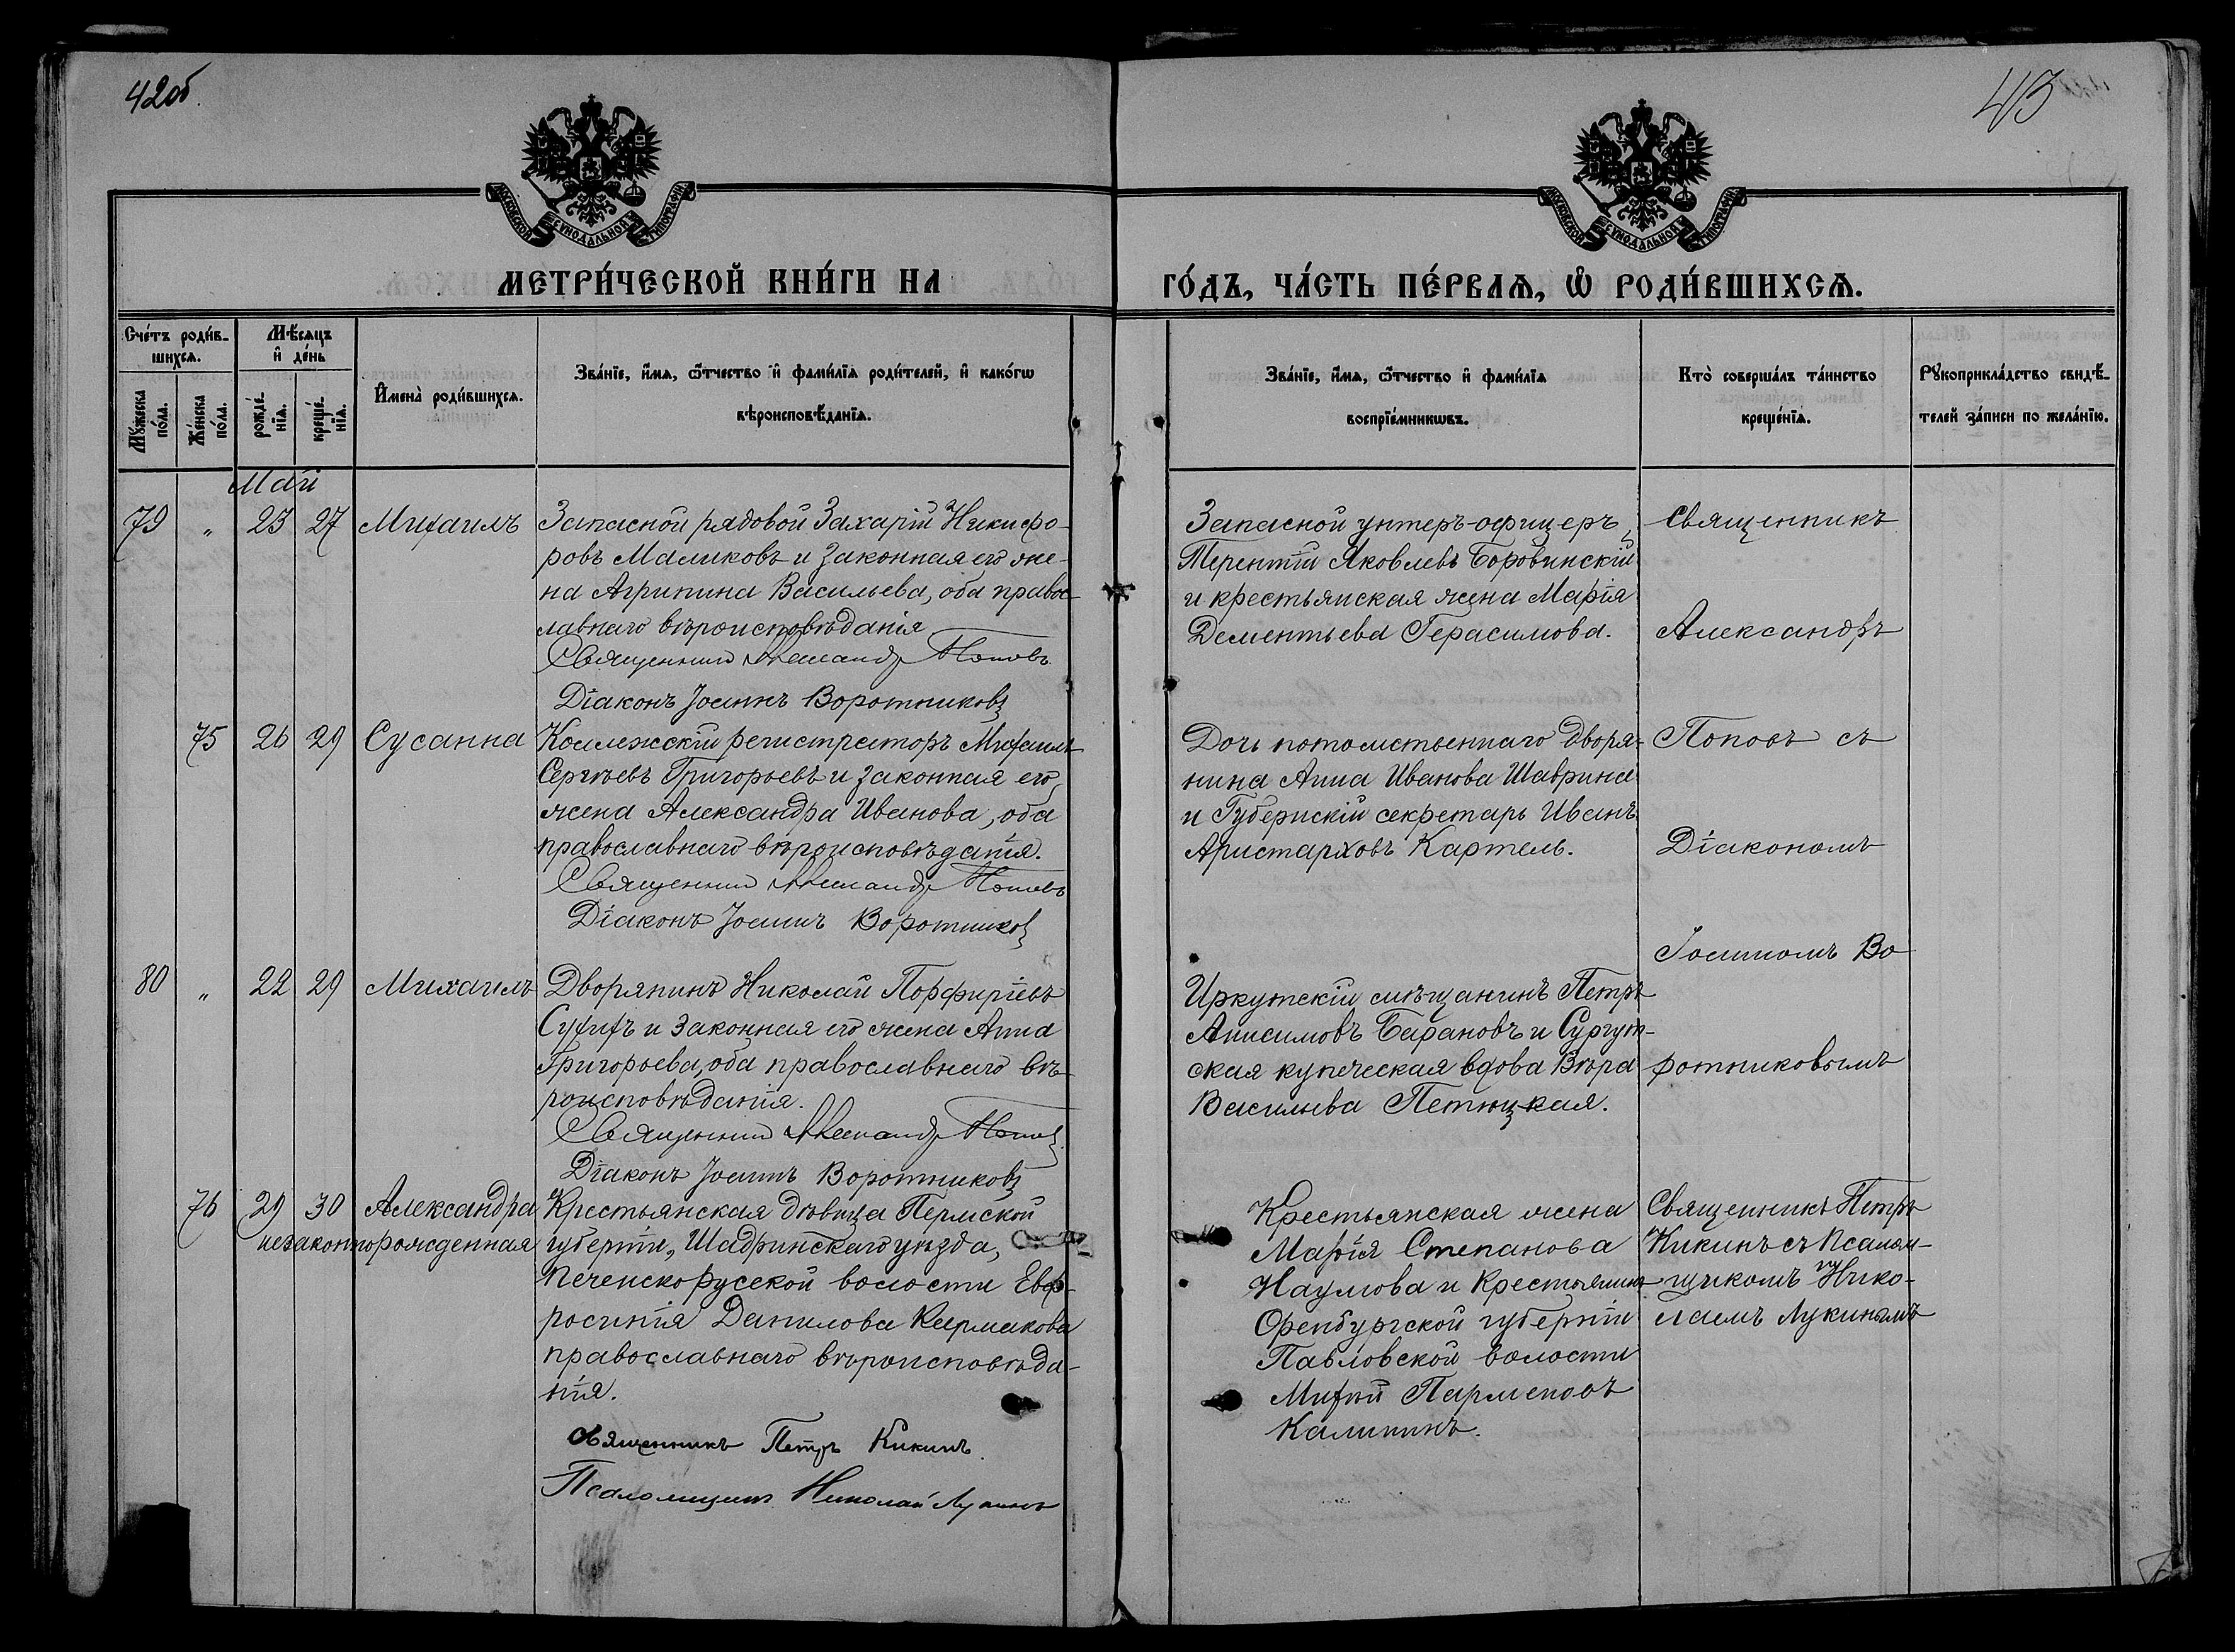 42об.
43
МОСКОВСКОЙ СѴНОДАЛЬНОЙ ТИПОГРАФІИ
МОСКОВСКОЙ СѴНОДАЛЬНОЙ ТИПОГРАФІИ
МЕТРИ́ЧЕСКОЙ КНИ́ГИ НА
ГО́ДЪ, ЧА́СТЬ ПЕ́РВАѦ, Ѡ҆ РОДИ́ВШИХСѦ.
Сче́тъ роди́в-
шихсѧ.
Мꙋ́жеска по́ла.
Же́нска по́ла.
Мѣ́сѧцъ
и҆ де́нь
рожде́нїѧ.
креще́нїѧ.
И҆мена̀ роди́вшихсѧ.
Зва́нїе, и҆́мѧ, ѻ҆́тчество и҆ фами́лїѧ роди́телей, и҆ како́гѡ
вѣроисповѣ́данїѧ.
Зва́нїе, и҆́мѧ, ѻ҆́тчество и҆ фами́лїѧ
воспрїе́мникѡвъ.
Кто̀ соверша́лъ та́инство
креще́нїѧ.
Рꙋкоприкла́дство свидѣ́-
телей за́писи по жела́нїю.
Май
79 " 23 27 Михаилъ
Запасной рядовой Захарій Никифо-
ровъ Маликовъ и законная его же-
на Агрипина Васильева, оба правос-
лавнаго вѣроисповѣданія
Священникъ Александръ Поповъ
Діаконъ Іоаннъ Воротниковъ
Запасной унтеръ-офицеръ
Терентій Яковлевъ Боровинскій
и крестьянская жена Марія
Дементьева Герасимова.
Священникъ
Александръ
75 26 29 Сусанна
Коллежскій регистраторъ Михаилъ
Сергѣевъ Григорьевъ и законная его
жена Александра Иванова, оба
православнаго вѣроисповѣданія.
Священникъ Александръ Поповъ
Діаконъ Іоаннъ Воротниковъ
Дочь потомственнаго дворя-
нина Анна Иванова Шаврина
и Губернскій секретарь Иванъ
Аристарховъ Картель.
Поповъ съ
Діакономъ
Іоанномъ Во
80 " 22 29 Михаилъ
Дворянинъ Николай Порфирьевъ
и законная его жена Анна
Григорьева, оба православнаго вѣ-
роисповѣданія.
Священникъ Александръ Поповъ
Діаконъ Іоаннъ Воротниковъ
Иркутскій мѣщанинъ Петръ
Анисимовъ Барановъ и Сургут-
ская купеческая вдова Вѣра
Васильева
ротниковымъ
76 29 30 Александра
незаконнорожденная
Крестьянская дѣвица Пермской
губерніи, Шадринскаго уѣзда,
волости Евф-
росинія Данилова Кармакова
православнаго вѣроисповѣда-
нія.
Священникъ Петръ Кикинъ.
Псаломщикъ Николай Лукинъ
Крестьянская жена
Марія Степанова
Наумова и Крестьянинъ
Оренбургской губерніи
Павловской волости
Парменовъ
Калининъ.
Священникъ Петръ
Кикинъ съ Псалом-
щикомъ Нико-
лаемъ Лукинымъ